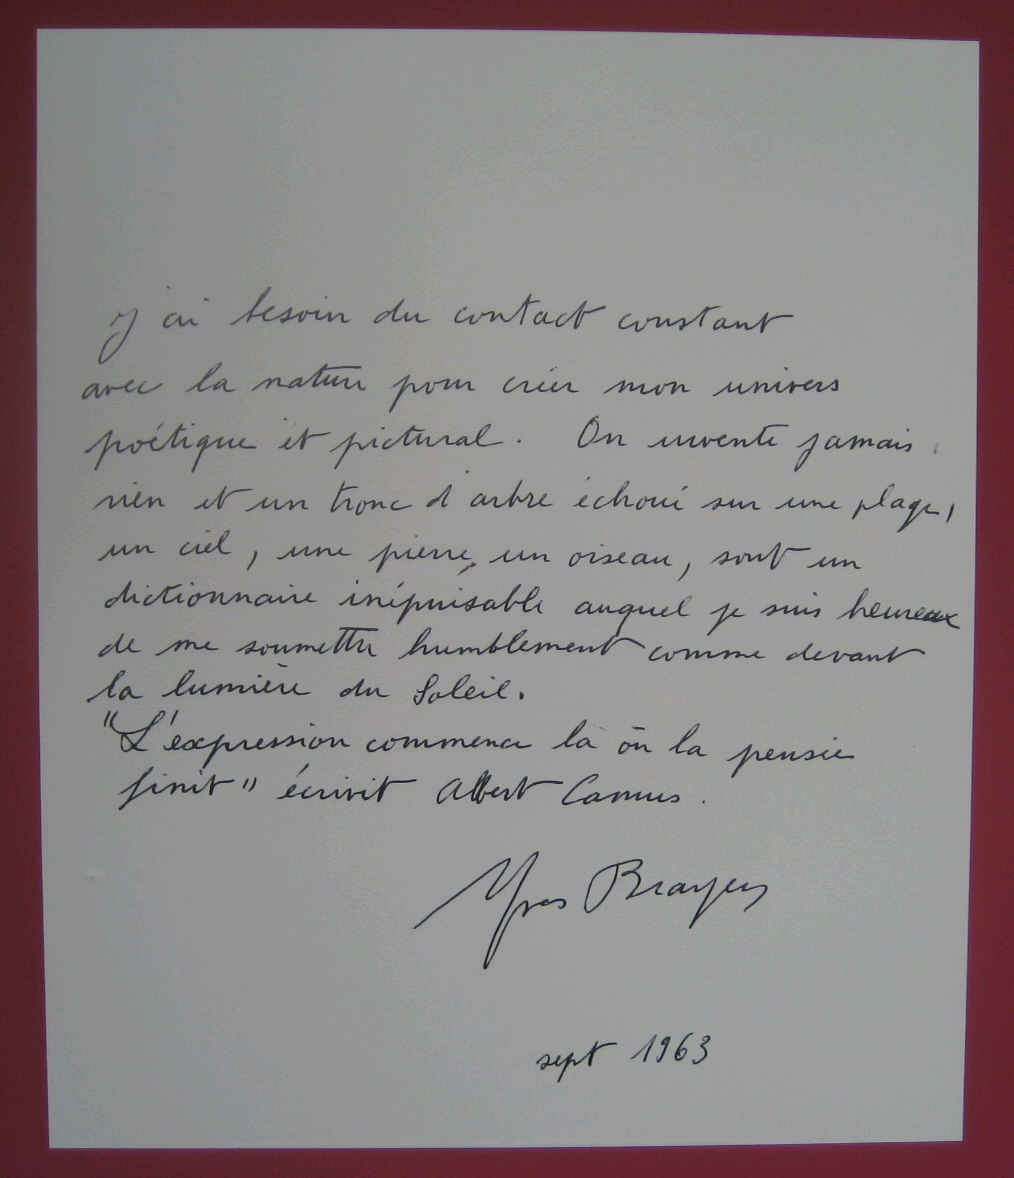 J'ai besoin du contact constant
avec la nature pour créer mon univers
poétique et pictural. On invente jamais
rien et un tronc d'arbre échoué sur une plage,
un ciel, une pierre, un oiseau, sont un
dictionnaire inépuisable auquel je suis heureux
de me soumettre humblement comme devant
la lumière du Soleil.
"L'expression commence là où la pensée
finit" écrivit Albert Camus.
Yves Brayer
sept 1963